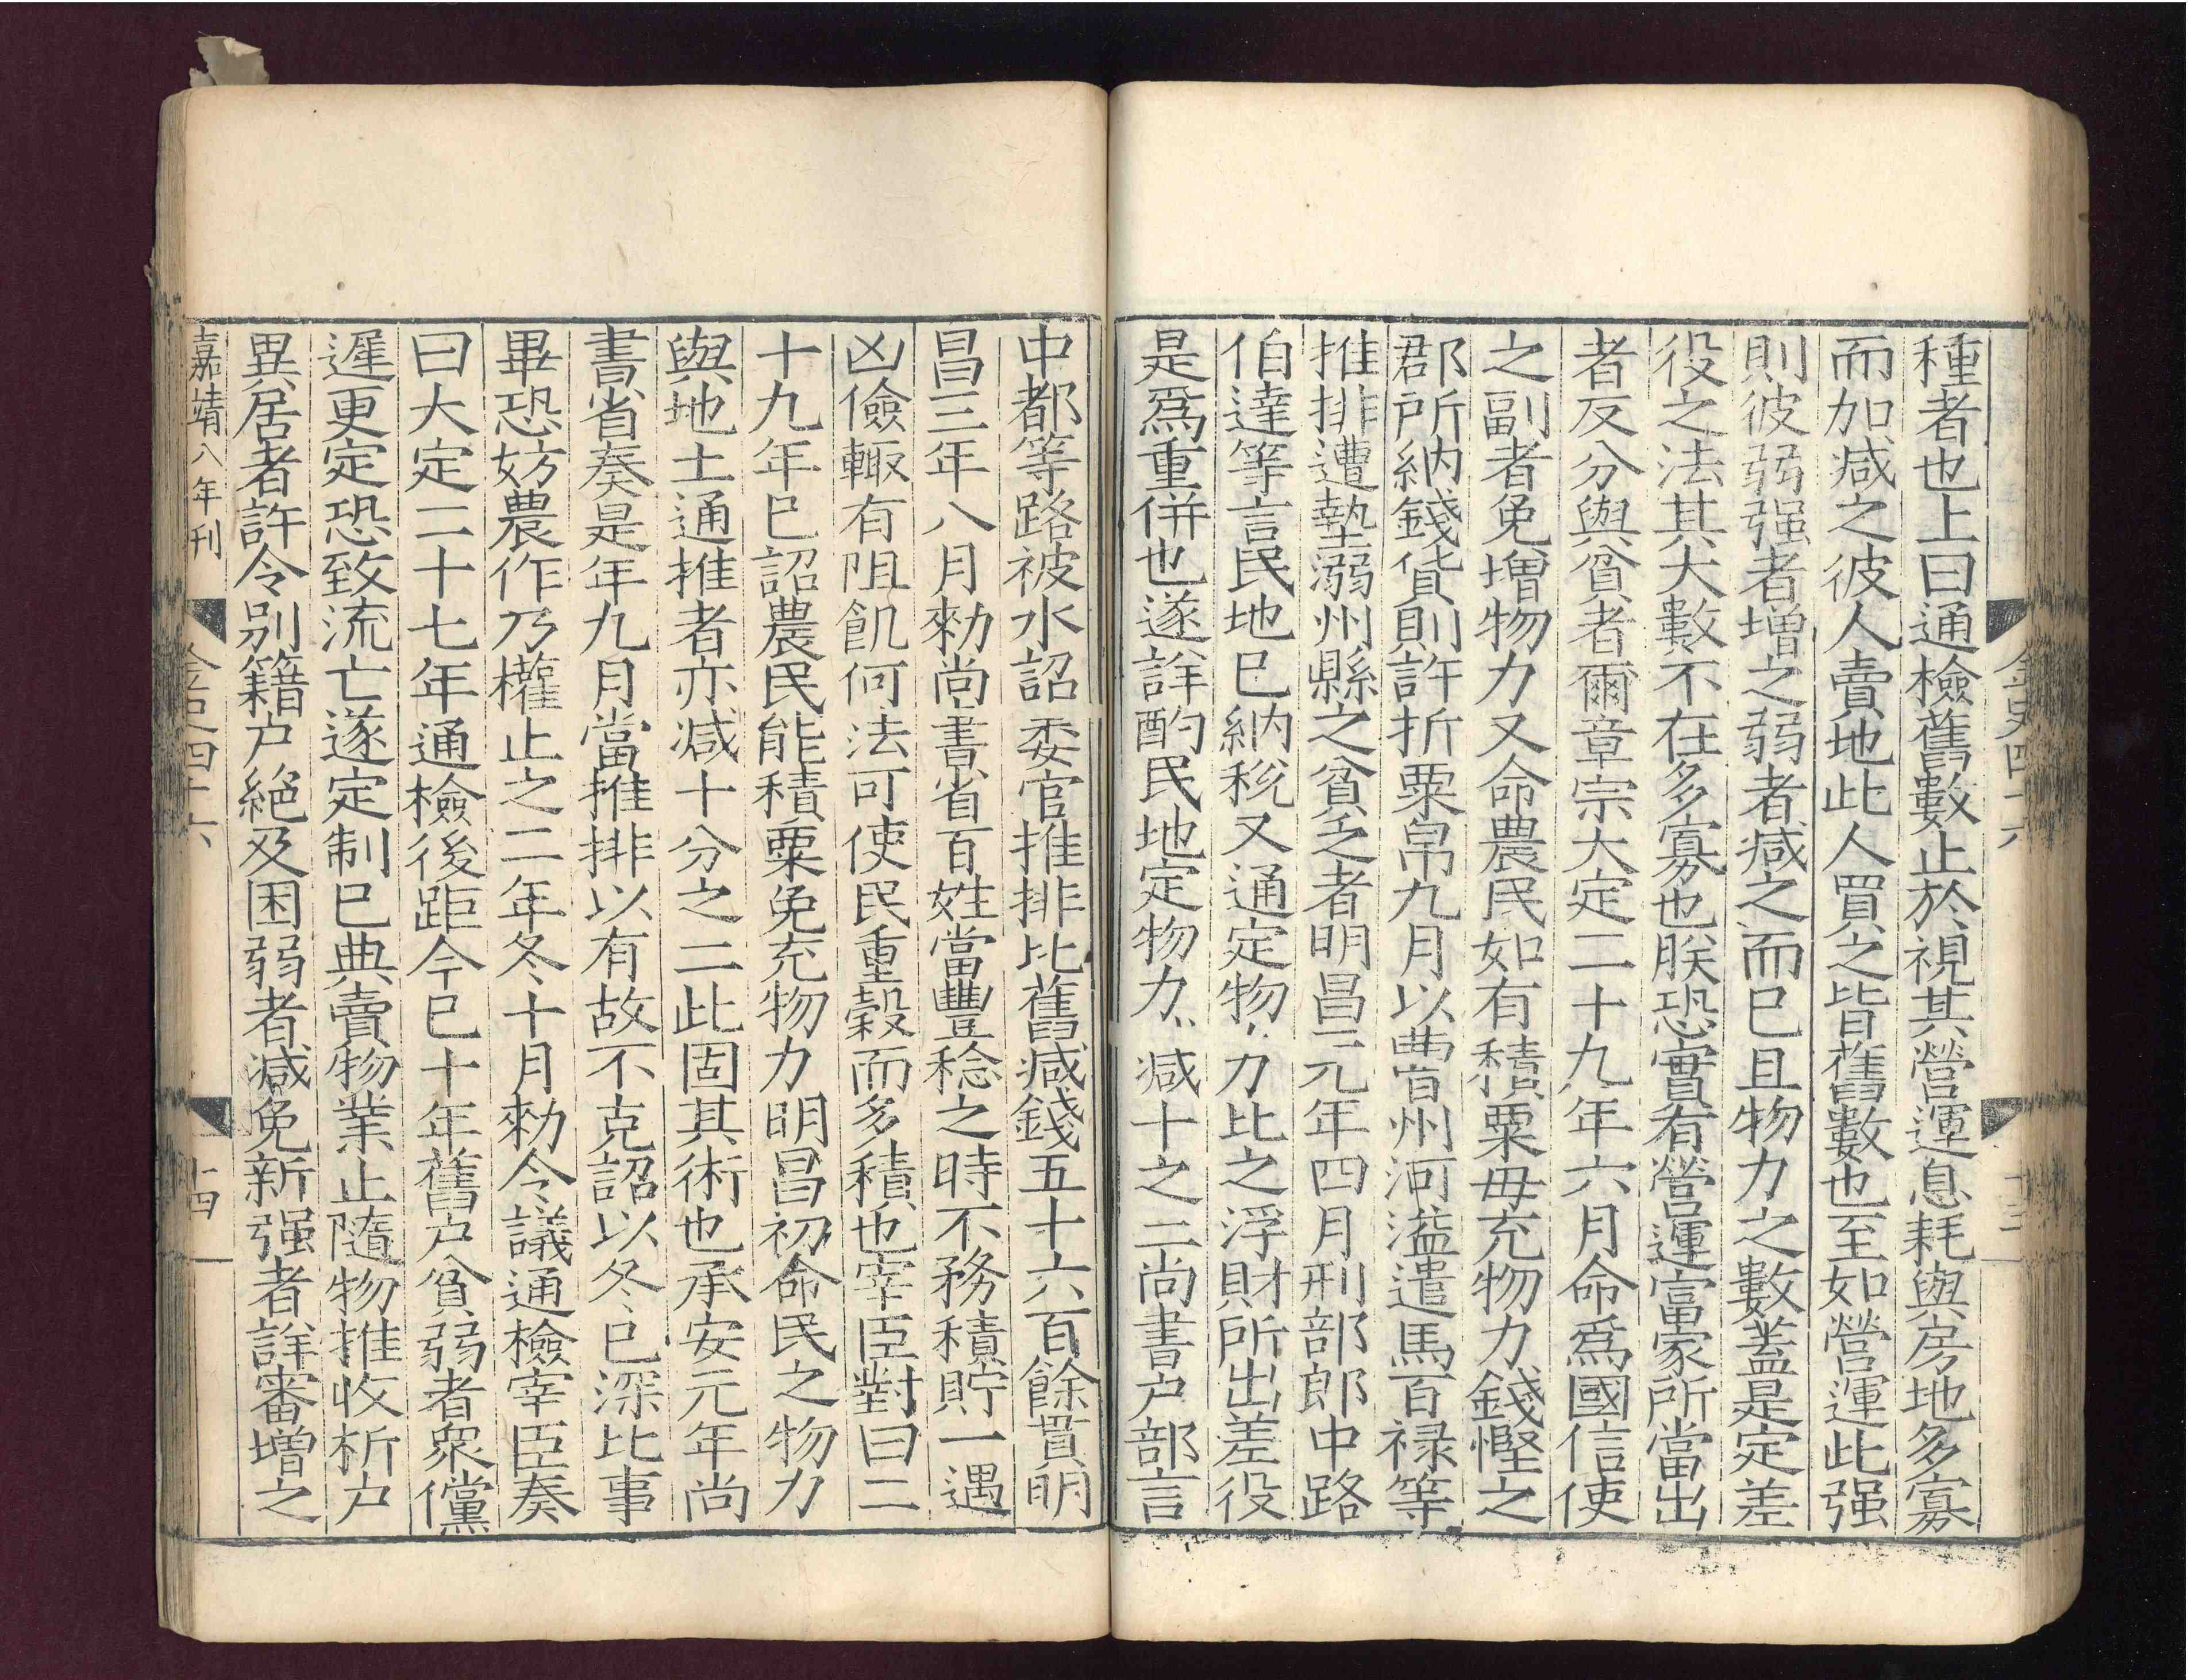 金史四十六
十三
種者也上曰通檢舊數止於視其營運息耗與房地多寡
而加减之彼人賣地此人買之皆舊數也至如營運此强
則彼弱强者增之弱者减之而已且物力之數蓋是定差
役之法其大數不在多寡也朕恐實有營運富家所當出
者反分與貧者爾章宗大定二十九年六月命爲國信使
之副者免增物力又命農民如有積粟毋充物力錢慳之
郡所納錢貨則許折粟帛九月以曹州河溢遣馬百禄等
推排遭墊溺州縣之貧乏者明昌元年四月刑部郎中路
伯達等言民地已納稅又通定物力比之浮財所出差役
是爲重併也遂詳酌民地定物力减十之二尚書户部言
中都等路被水詔委官推排比舊减錢五十六百餘貫明
昌三年八月勑尚書省百姓當豐稔之時不務積貯一遇
凶儉輙有阻飢何法可使民重穀而多積也宰臣對曰二
十九年已詔農民能積粟免充物力明昌初命民之物力
與地土通推者亦减十分之二此固其術也承安元年尚
書省奏是年九月當推排以有故不克詔以冬已深比事
畢恐妨農作乃權止之二年冬十月勑令議通檢宰臣奏
曰大定二十七年通檢後距今已十年舊户貧弱者衆儻
遲更定恐致流亡遂定制已典賣物業止隨物推收析户
異居者許令别籍户絶及困弱者减免新强者詳審增之
嘉靖八年刊
金史四十六
十四